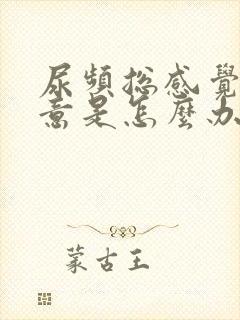 尿頻總感覺
意是怎麼办
蒙古王